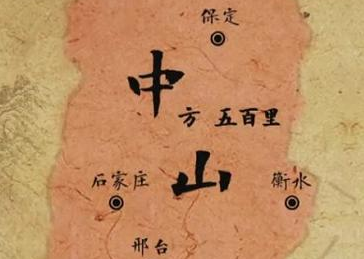 保定
中
方 五百里
石家庄 山 衡水
邢台